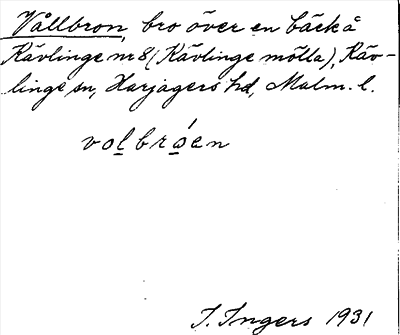 Vållbron, bro över en bäck å
Kävlinge nr 8 (Kävlinge mölla), Käv-
linge sn, Harjagers hd, Malm. l.
volbróen
I. Ingers 1931